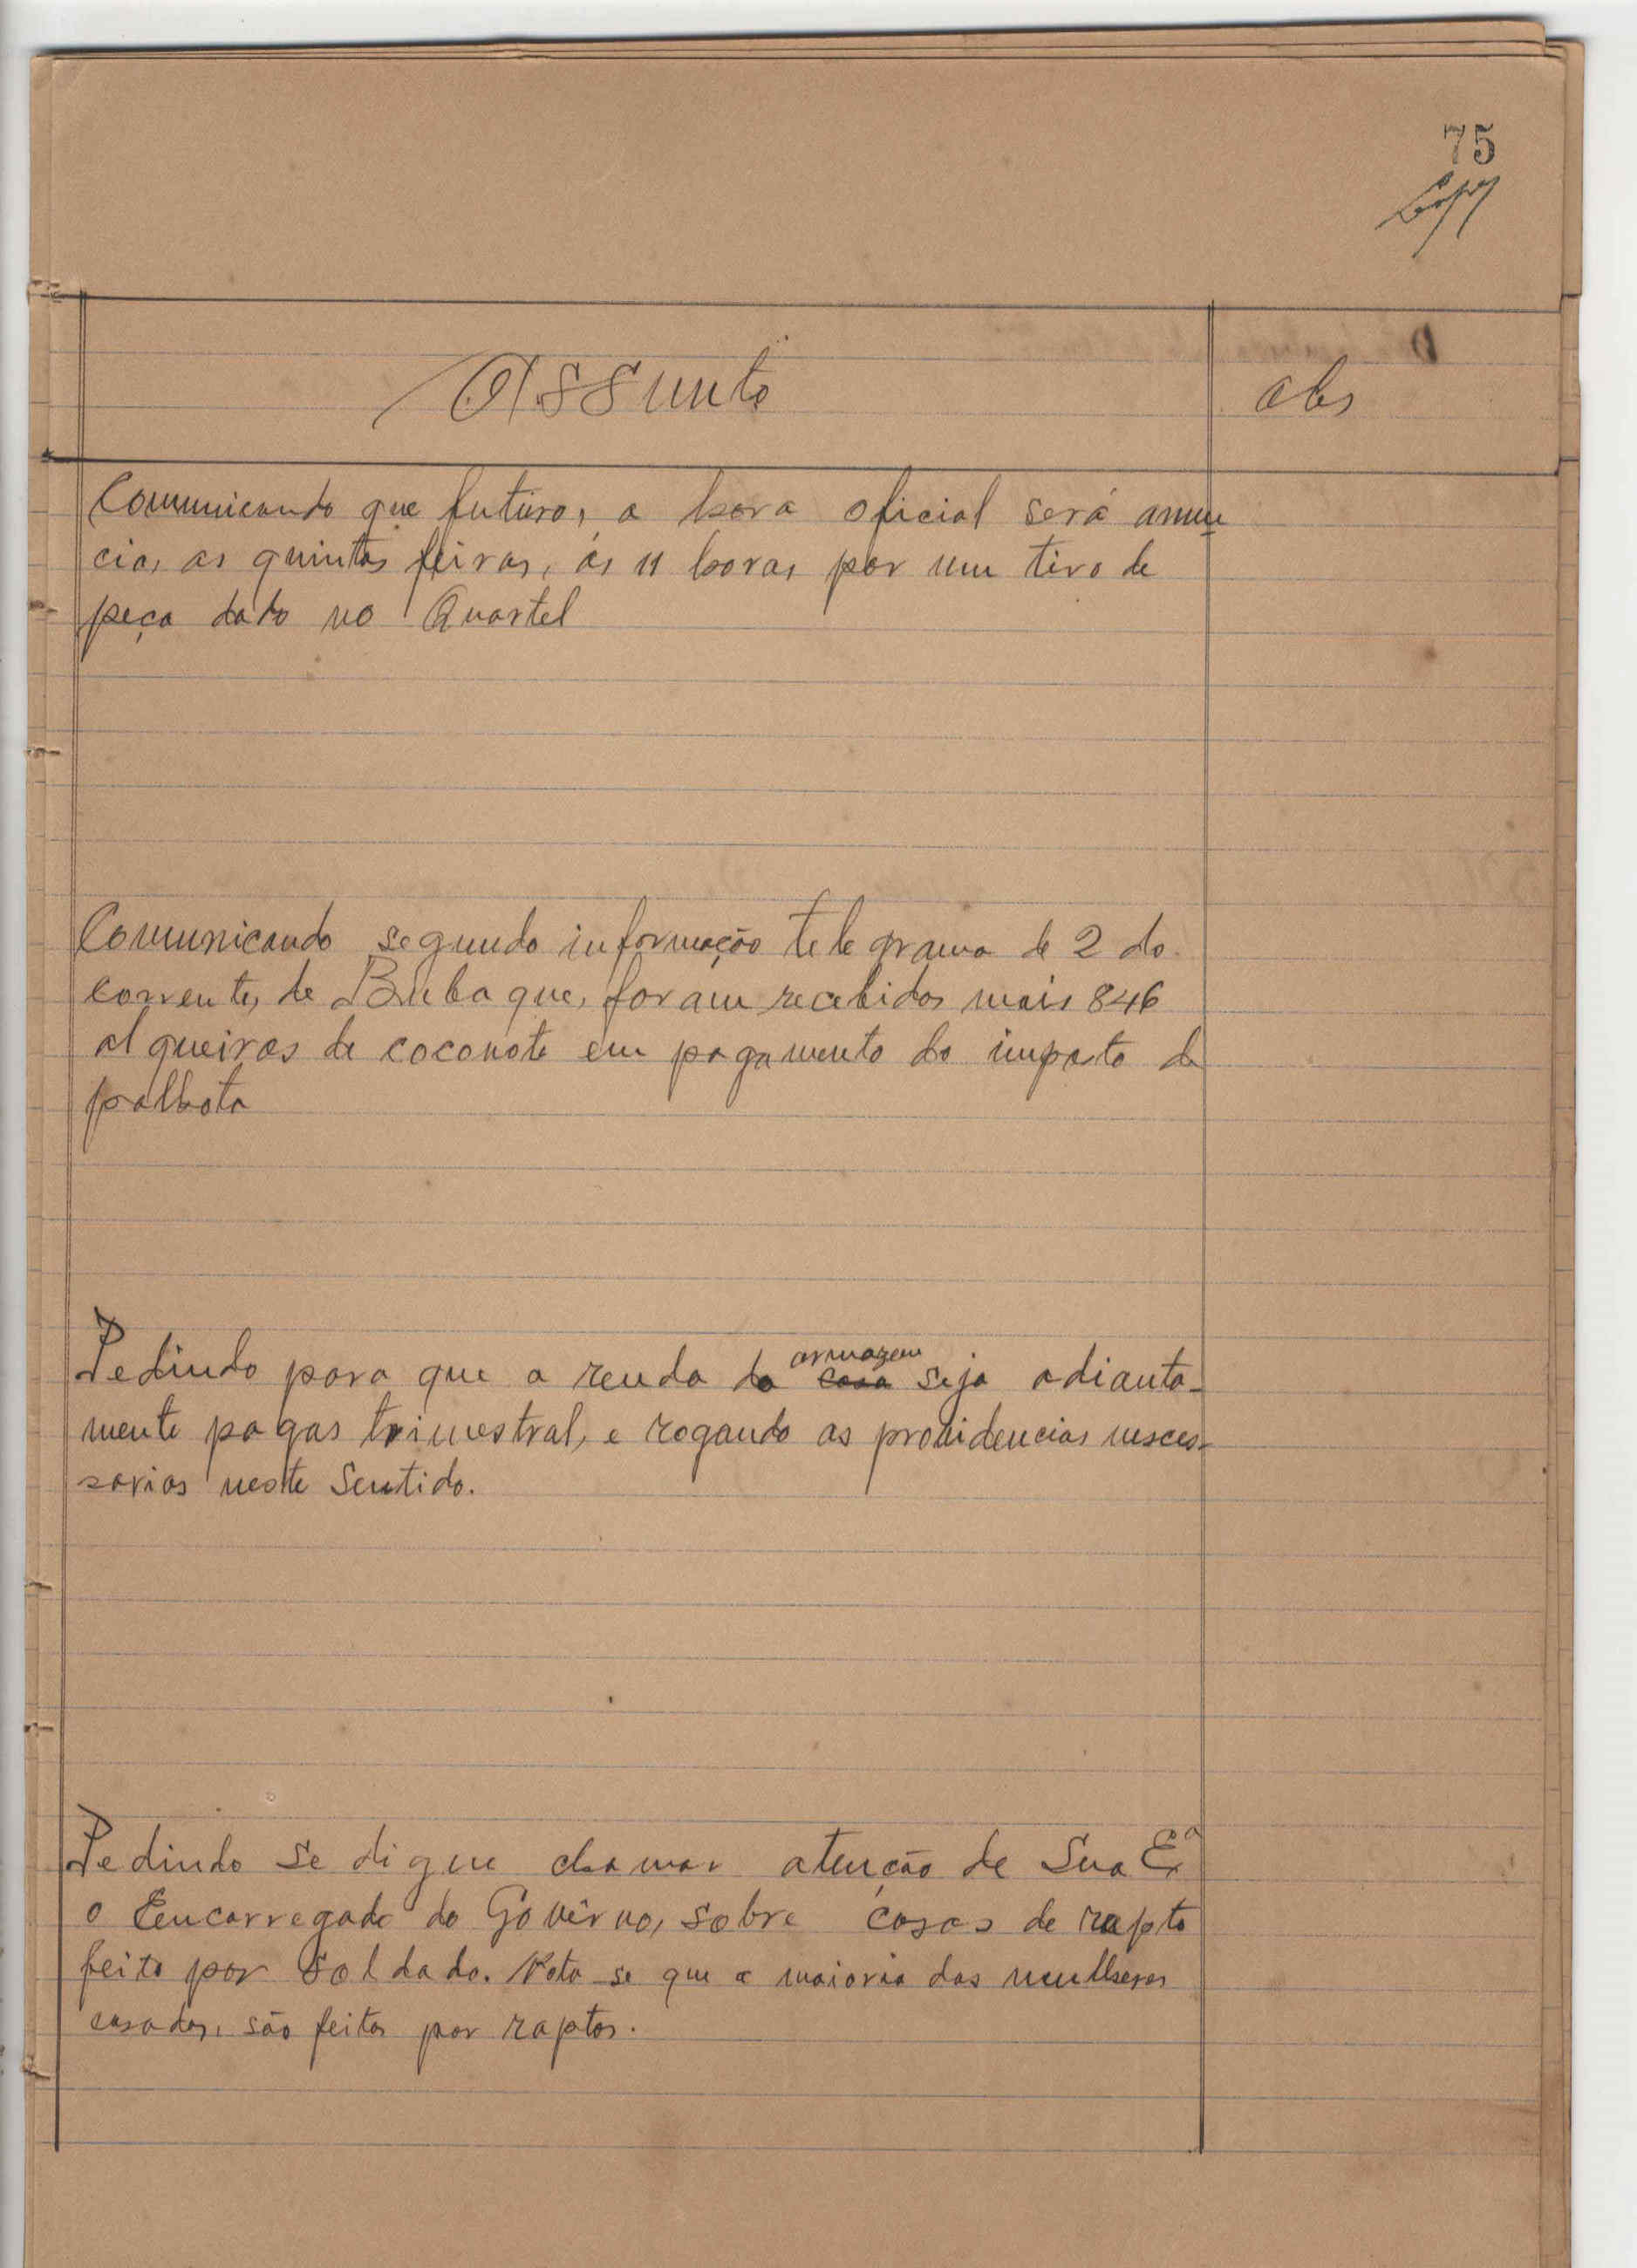 75
Assunto
Obs
Comunicando que futuro, a hora oficial será anun
cia, as quintas feiras, ás 11 horas por um tiro de
peça dado no Quartel
Comunicando segundo informação telegrama de 2 do
corrente, de Bubaque, foram recebidos mais 846
alqueiras de coconote em pagamento do imposto de
palhota
armazem
Pedindo para que a renda do casa seja adianta-
mente pagas trimestral, e rogando as providencias nesces-
sarias neste sentido.
Pedindo se digne chamar atenção de Sua Exª
o Encarregado do Govêrno, sobre casos de rapto
feito por soldado. Nota-se que a maioria das mulheres
casadas, são feitas por raptos.